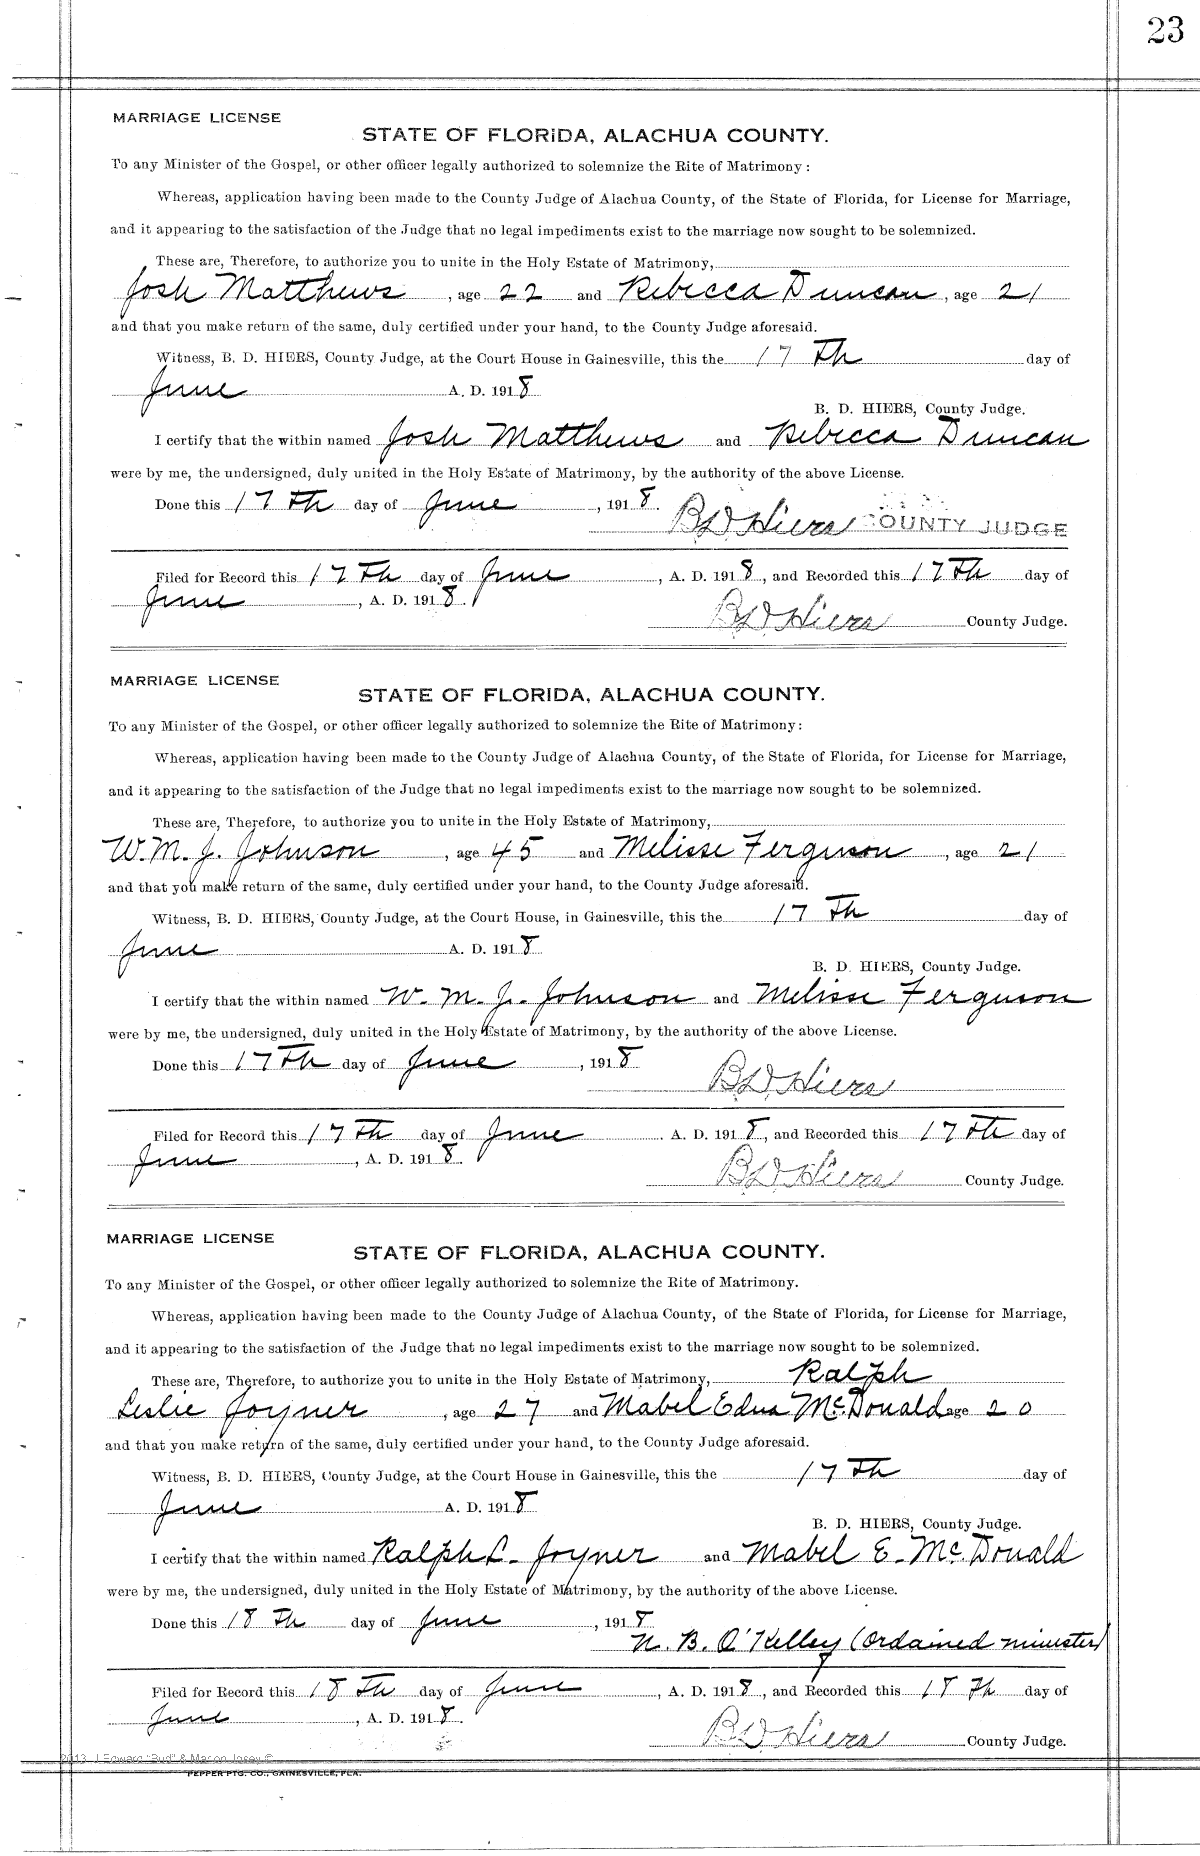 23
MARRIAGE LICENSE
STATE OF FLORIDA, ALACHUA COUNTY.
To any Minister of the Gospel, or other officer legally authorized to solemnize the Rite of Matrimony:
Whereas, application having been made to the County Judge of Alachua County, of the State of Florida, for License for Marriage,
and it appearing to the satisfaction of the Judge that no legal impediments exist to the marriage now sought to be solemnized.
These are, Therefore, to authorize you to unite in the Holy Estate of Matrimony,
Josh Matthews, age 22 and Rebecca Duncan, age 21
and that you make return of the same, duly certified under your hand, to the County Judge aforesaid.
Witness, B. D. HIERS, County Judge, at the Court House in Gainesville, this the 17th day of
June A. D. 1918
B. D. HIERS, County Judge.
I certify that the within named Josh Matthews and Rebecca Duncan
were by me, the undersigned, duly united in the Holy Estate of Matrimony, by the authority of the above License.
Done this 17th day of June, 1918.
BD Hiers COUNTY JUDGE
Filed for Record this 17th day of June, A. D. 1918, and Recorded this 17th day of
June, A. D. 1918.
BD Hiers County Judge.
MARRIAGE LICENSE
STATE OF FLORIDA, ALACHUA COUNTY.
To any Minister of the Gospel, or other officer legally authorized to solemnize the Rite of Matrimony:
Whereas, application having been made to the County Judge of Alachua County, of the State of Florida, for License for Marriage,
and it appearing to the satisfaction of the Judge that no legal impediments exist to the marriage now sought to be solemnized.
These are, Therefore, to authorize you to unite in the Holy Estate of Matrimony,
W. M. J. Johnson, age 45 and Melisse Ferguson, age 21
and that you make return of the same, duly certified under your hand, to the County Judge aforesaid.
Witness, B. D. HIERS, County Judge, at the Court House, in Gainesville, this the 17th day of
June A. D. 1918
B. D. HIERS, County Judge.
I certify that the within named W. M. J. Johnson and Melisse Ferguson
were by me, the undersigned, duly united in the Holy Estate of Matrimony, by the authority of the above License.
Done this 17th day of June, 1918
BD Hiers
Filed for Record this 17th day of June A. D. 1918, and Recorded this 17th day of
June, A. D. 1918.
BD Hiers County Judge.
MARRIAGE LICENSE
STATE OF FLORIDA, ALACHUA COUNTY.
To any Minister of the Gospel, or other officer legally authorized to solemnize the Rite of Matrimony.
Whereas, application having been made to the County Judge of Alachua County, of the State of Florida, for License for Marriage,
and it appearing to the satisfaction of the Judge that no legal impediments exist to the marriage now sought to be solemnized.
These are, Therefore, to authorize you to unite in the Holy Estate of Matrimony, Ralph
Leslie Joyner, age 27 and Mabel Edna McDonald age 20
and that you make return of the same, duly certified under your hand, to the County Judge aforesaid.
Witness, B. D. HIERS, County Judge, at the Court House in Gainesville, this the 17th day of
June A. D. 1918
B. D. HIERS, County Judge.
I certify that the within named Ralph L. Joyner and Mabel E. McDonald
were by me, the undersigned, duly united in the Holy Estate of Matrimony, by the authority of the above License.
Done this 18th day of June, 1918
N. B. O'Kelley (Ordained minister)
Filed for Record this 18th day of June, A. D. 1918, and Recorded this 18th day of
June, A. D. 1918.
BD Hiers County Judge.
2013 J Edward "Bud" & Macon Josey ©
PEPPER PTG. CO., GAINESVILLE, FLA.